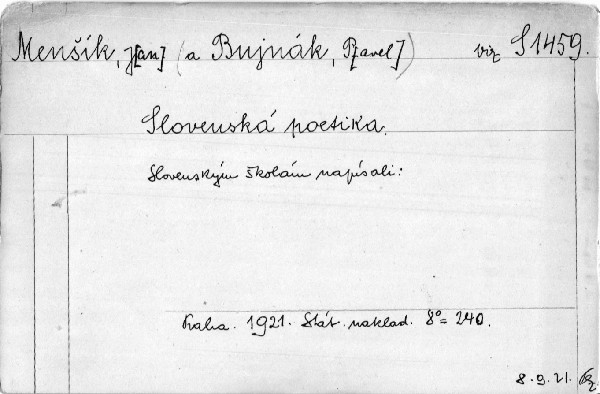 Menšík, J[an] (a Bujnák, P[avel]) viz S1459.
Slovenská poetika.
Slovenským školám napísali:
Praha. 1921. Stát. naklad. 8° = 240.
8.9.21.